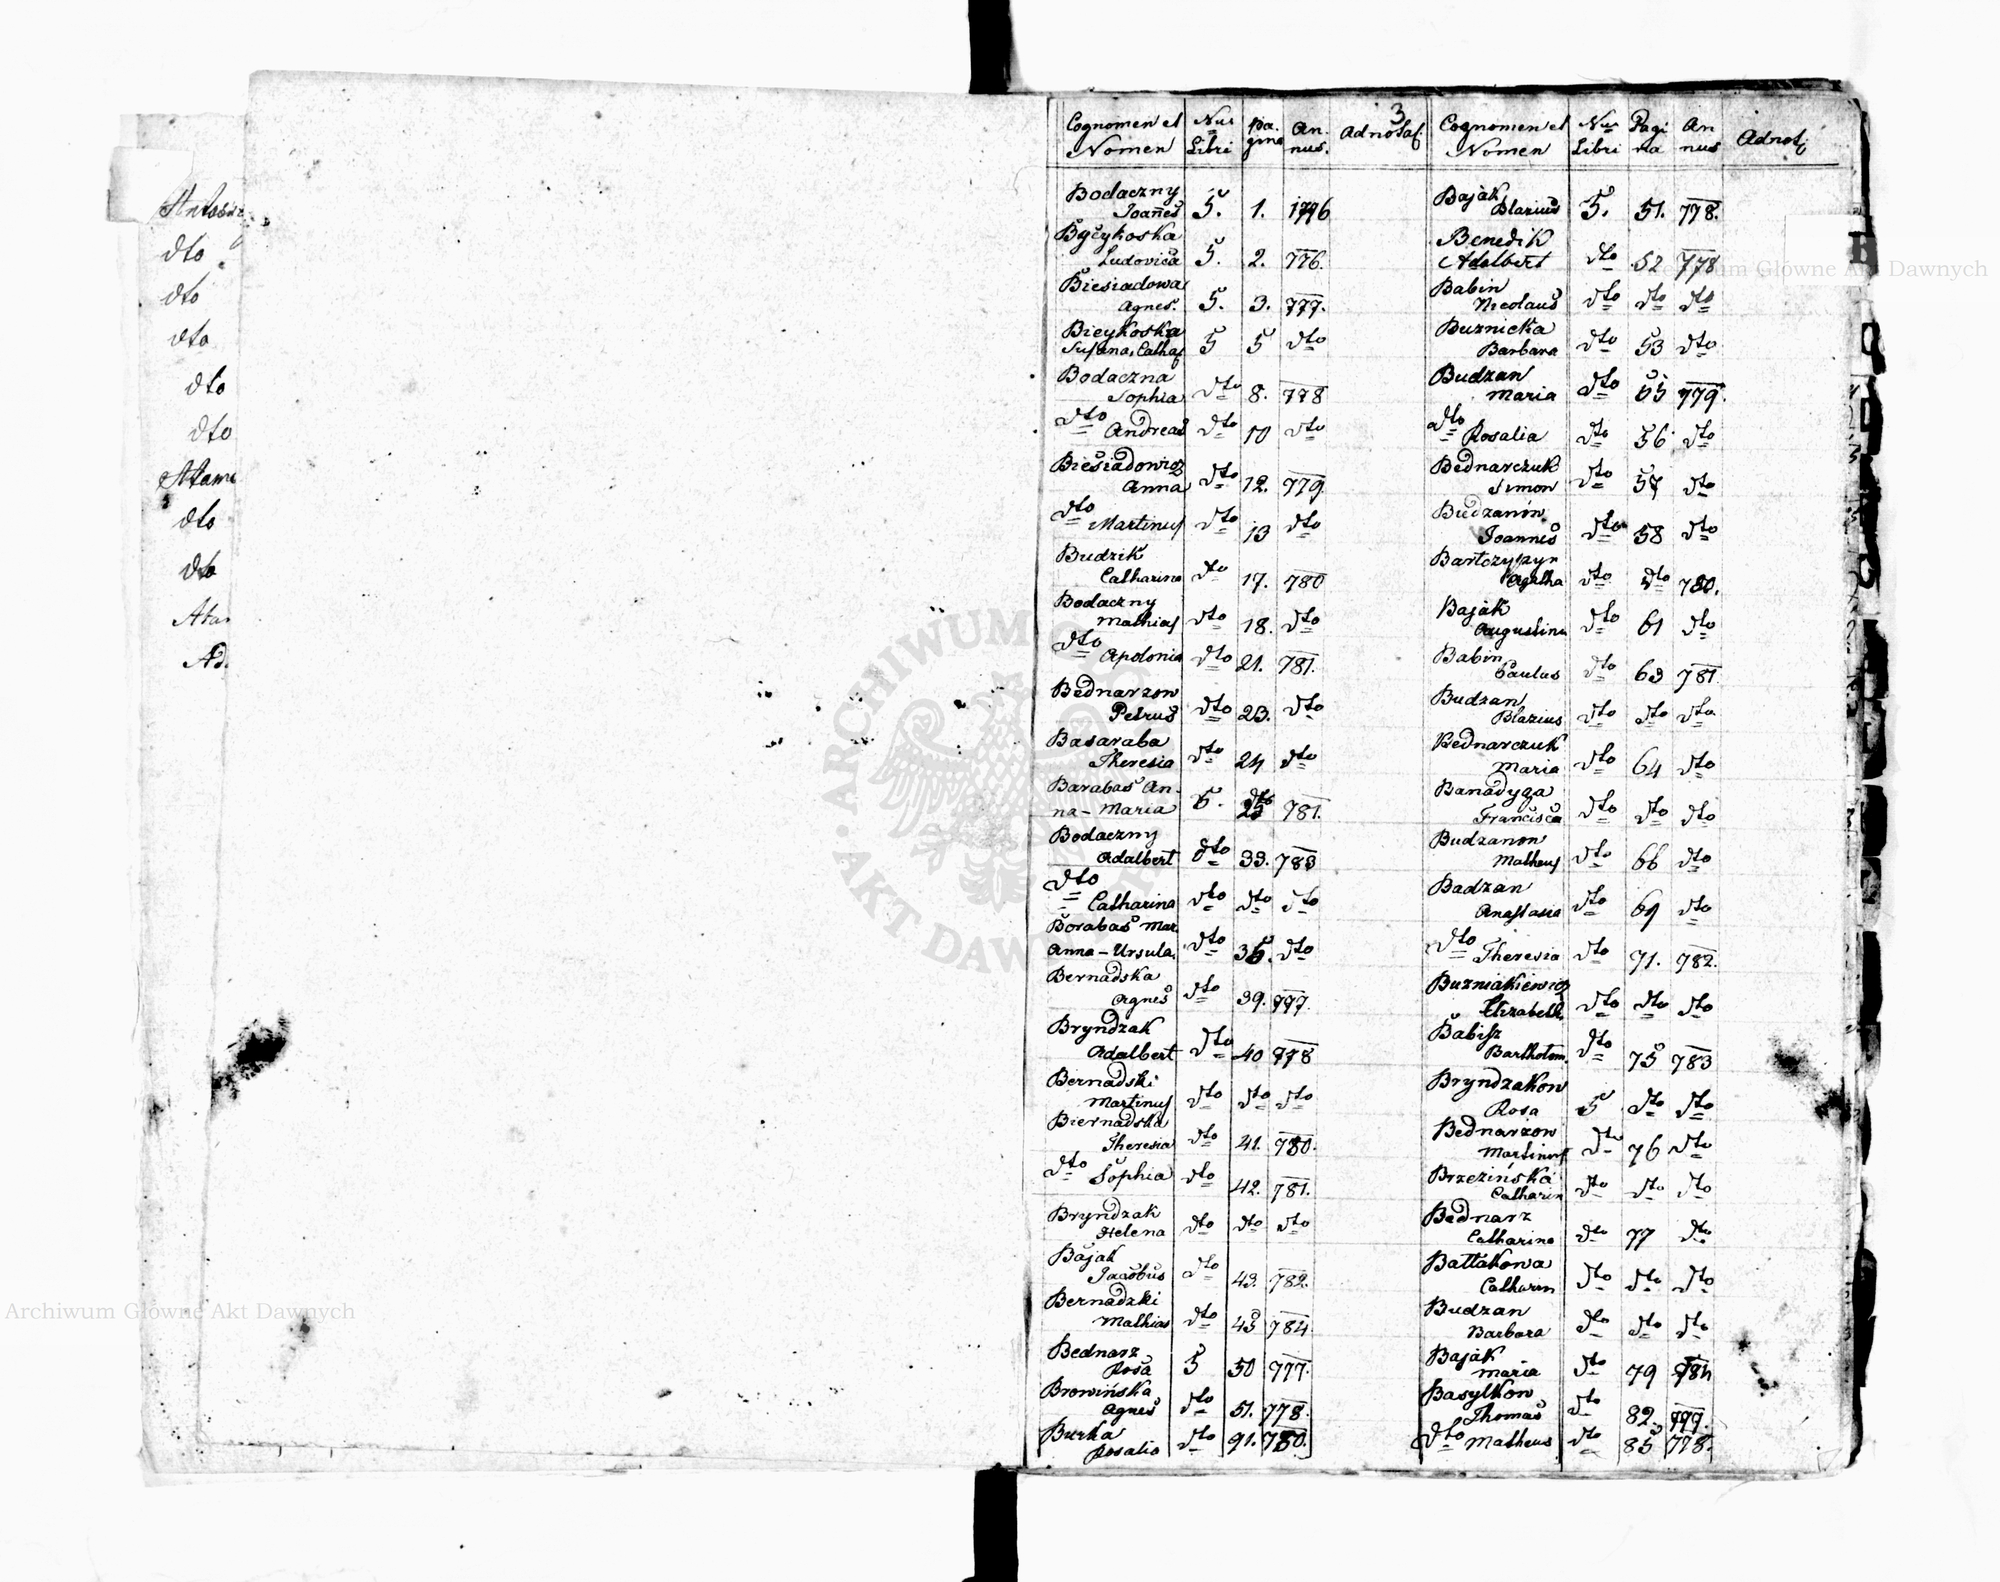 Antosz
dto
dto
dto
dto
dto
Atama
dto
dto
Ata
Ad
3
Cognomen et Nomen Nus Libri pagina Annus. Adnotat.
Bodaczny
Joanes 5. 1. 1776
Byčykoska
Ludovica 5. 2. 776.
Biesiadowa
Agnes. 5. 3. 777.
Bieykoska
Susana, Cathar 5 5 dto
Bodaczna
Sophia dto 8. 778
dto Andreas dto 10 dto
Biesiadowicz
Anna dto 12. 779
dto Martinus dto 13 dto
Budzik
Catharina dto 17. 780
Bodaczny
Mathias dto 18. dto
dto Apolonia dto 21. 781.
Bednarzow
Petrus dto 23. dto
Basaraba
Theresia dto 24 dto
Barabas An-
na-Maria 5. 25 781.
Bodaczny
Adalbert dto 33. 783
dto
Catharina dto dto dto
Borabas Mar.
Anna-Ursula. dto 35. dto
Bernadska
Agnes dto 39. 777.
Bryndzak
Adalbert dto 40 778
Bernadski
Martinus dto dto dto
Biernadska
Theresia dto 41. 780.
dto Sophia dto 42. 781.
Bryndzak
Helena dto dto dto
Bajak
Jacobus dto 43. 782.
Bernadzki
Mathias dto 45 784
Bednarz
Rosa 5 50 777.
Browińska
Agnes dto 51. 778.
Burka
Rosalia dto 91. 780.
Cognomen et Nomen Nus Libri Pagina Annus Adnot
Bajak
Blasius 5. 51. 778.
Benedik
Adalbert dto 52 778
Babin
Nicolaus dto dto dto
Buznicka
Barbara dto 53 dto
Budzan
Maria dto 55 779.
dto Rosalia dto 56 dto
Bednarczuk
Simon dto 57 dto
Budzanow
Joannes dto 58 dto
Agatha dto dto 780.
Bajak
Augustina dto 61 dto
Babin
Paulus dto 63 781
Budzan
Blazius dto dto dto
Bednarczuk
Maria dto 64 dto
Banadyga
Francisca dto dto dto
Budzanow
Matheus dto 66 dto
Badzan
Anastasia dto 69 dto
dto Theresia dto 71. 782.
Buzniakiewicz
Elizabeth. dto dto dto
Babisz
Bartholom. dto 75 783
Bryndzakow
Rosa 5 dto dto
Bednarzow
Martinus dto 76 dto
Brzezińska
Catharin dto dto dto
Bednarz
Catharina dto 77 dto
Battakowa
Catharin dto dto dto
Budzan
Barbara dto dto dto
Bajak
Maria dto 79 784
Basylkow
Thomas dto 82. 777.
dto Matheus dto 85 778.
B
Archiwum Główne Akt Dawnych
Archiwum Główne Akt Dawnych
ARCHIWUM GŁÓWNE AKT DAWNYCH